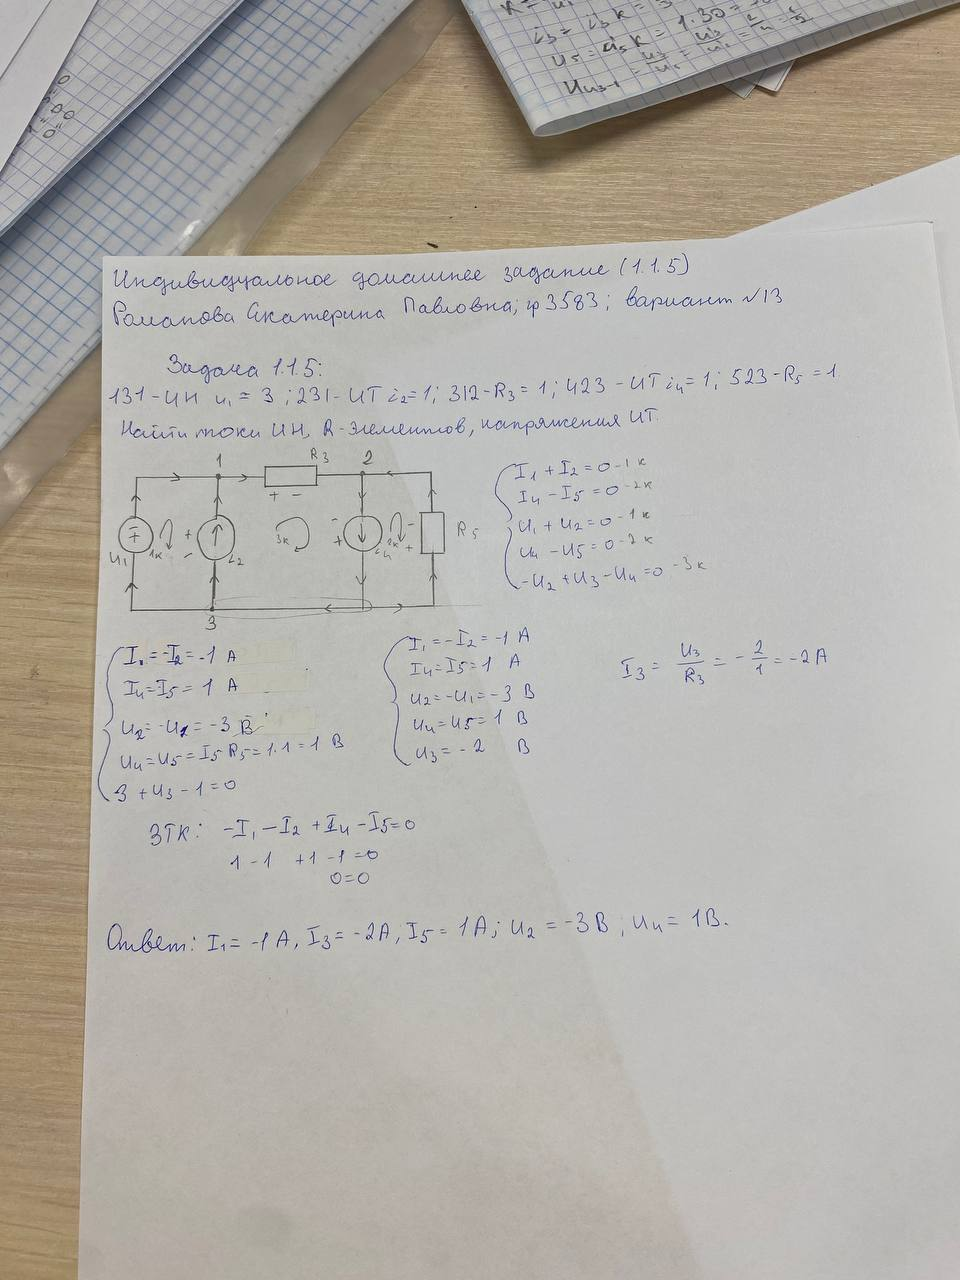 i₃ = i₃ к = 3
u₅ = u₅ к = 1·30 =
Индивидуальное домашнее задание (1.1.5)
Романова Екатерина Павловна; гр 3583; вариант №13
Задача 1.1.5:
131-ИН u₁ = 3; 231-ИТ i₂=1; 312-R₃=1; 423-ИТ i₄=1; 523-R₅=1
Найти токи ИН, R-элементов, напряжения ИТ
1 R₃ 2
+ -
u₁ + - 1к + - i₂ 3к - + i₄ 2к - + R₅
3
I₁ + I₂ = 0 - 1к
I₄ - I₅ = 0 - 2к
u₁ + u₂ = 0 - 1к
u₄ - u₅ = 0 - 2к
-u₂ + u₃ - u₄ = 0 - 3к
I₁ = -I₂ = -1 A
I₄ = I₅ = 1 A
u₂ = -u₂ = -3 В
u₄ = u₅ = I₅ R₅ = 1·1 = 1 В
3 + u₃ - 1 = 0
I₁ = -I₂ = -1 A
I₄ = I₅ = 1 A
u₂ = -u₁ = -3 В
u₄ = u₅ = 1 В
u₃ = -2 В
I₃ = u₃/R₃ = -2/1 = -2 A
ЗТК: -I₁ - I₂ + I₄ - I₅ = 0
1 - 1 + 1 - 1 = 0
0 = 0
Ответ: I₁ = -1 A, I₃ = -2A, I₅ = 1A; u₂ = -3 В; u₄ = 1В.